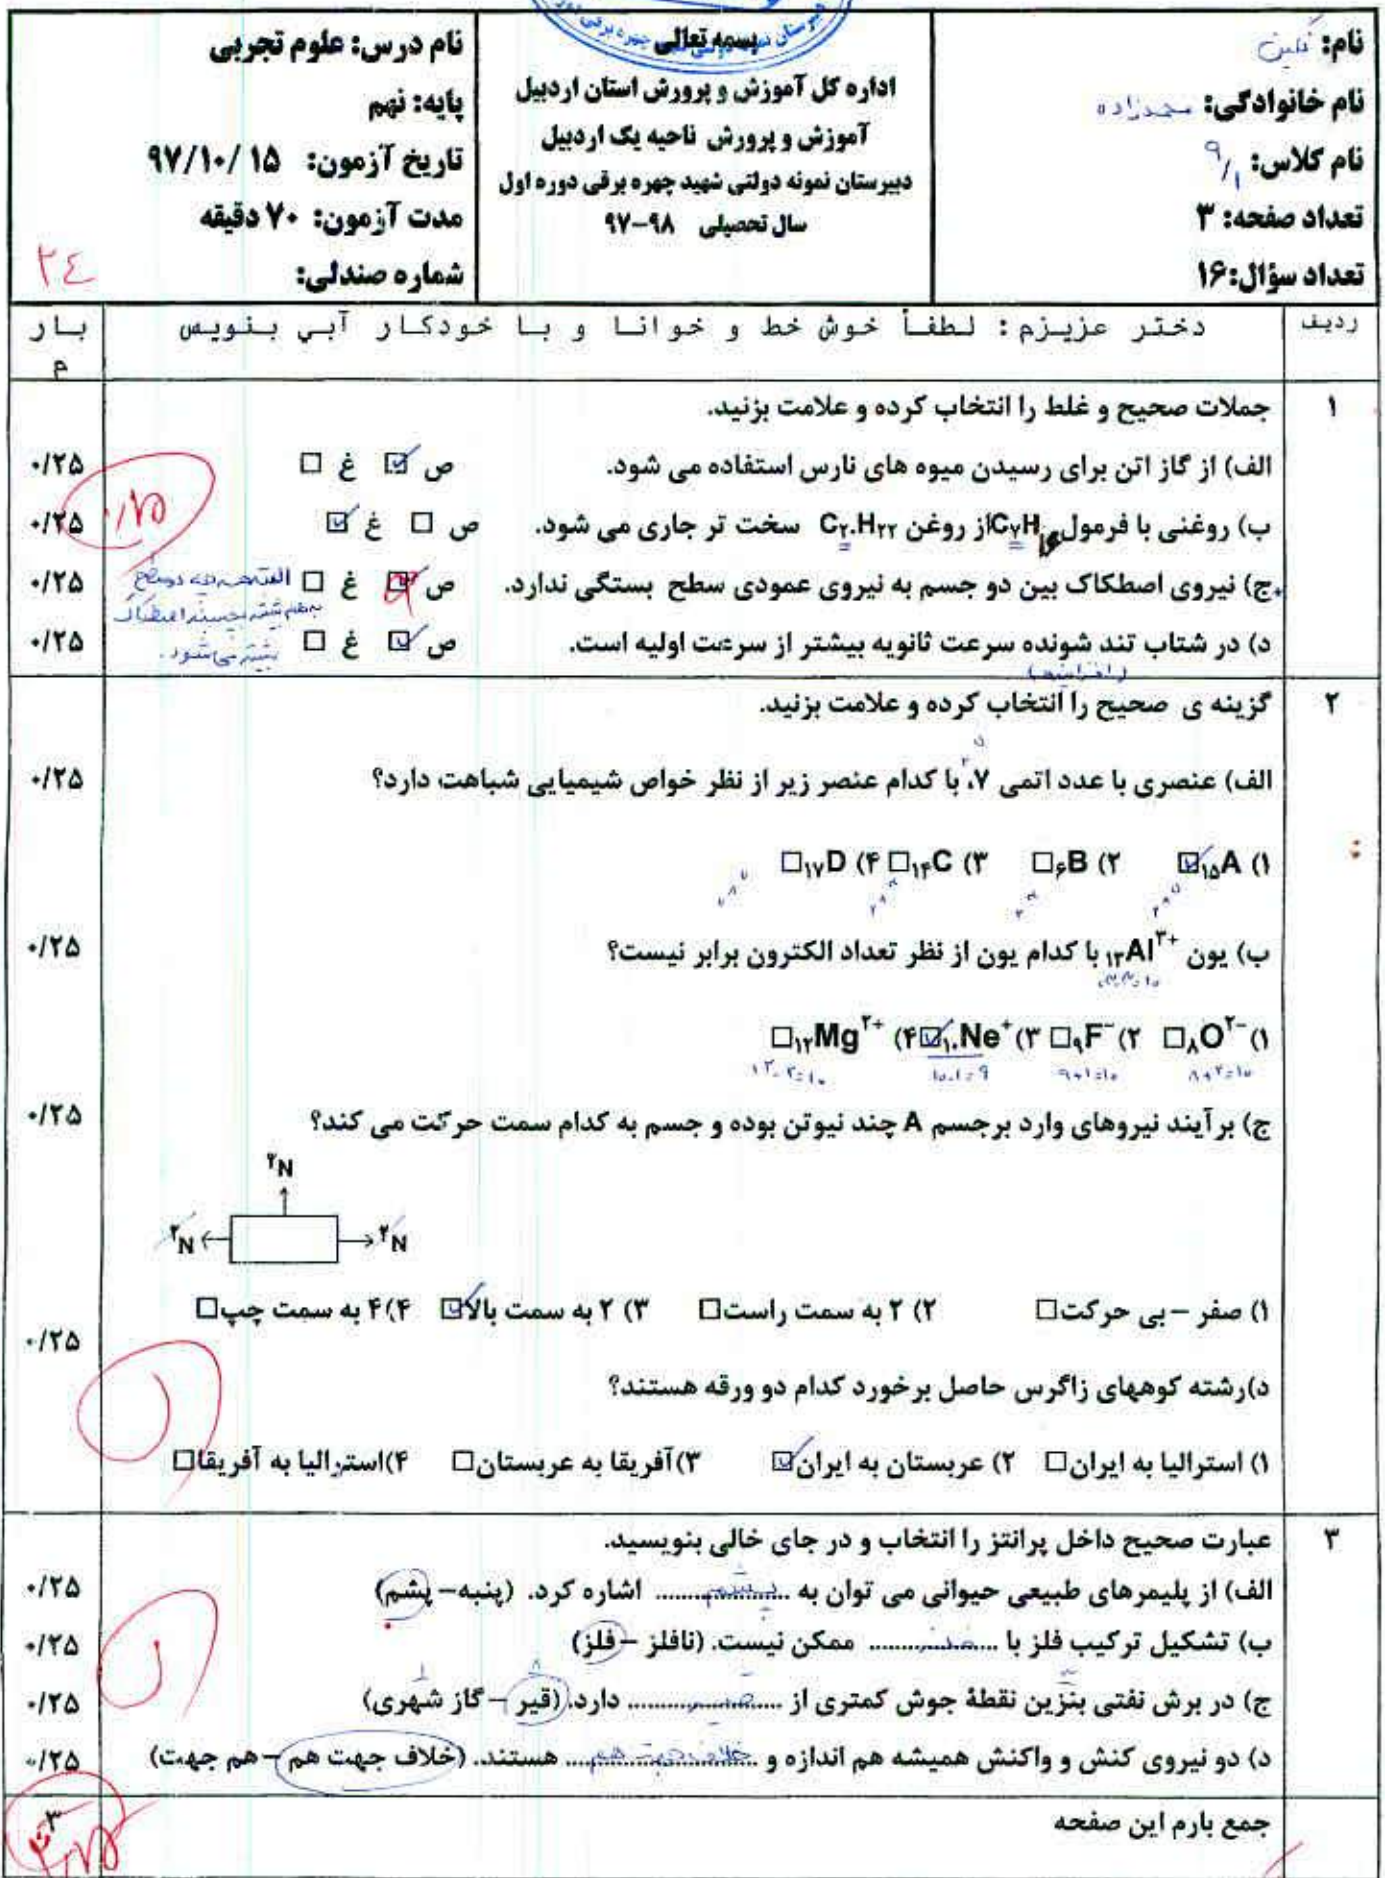 نام: نگین
نام خانوادگی: مجدزاده
نام کلاس: ۹/۱
تعداد صفحه: ۳
تعداد سؤال: ۱۶
بسمه تعالی
اداره کل آموزش و پرورش استان اردبیل
آموزش و پرورش ناحیه یک اردبیل
دبیرستان نمونه دولتی شهید چهره برقی دوره اول
سال تحصیلی ۹۷-۹۸
نام درس: علوم تجربی
پایه: نهم
تاریخ آزمون: ۹۷/۱۰/۱۵
مدت آزمون: ۷۰ دقیقه
شماره صندلی:
۲۴
ردیف دختر عزیزم: لطفاً خوش خط و خوانا و با خودکار آبی بنویس بارم
۱ جملات صحیح و غلط را انتخاب کرده و علامت بزنید.
الف) از گاز اتن برای رسیدن میوه های نارس استفاده می شود. ص ☑ غ □ ۰/۲۵
ب) روغنی با فرمول C۷H۱۶ از روغن C۲۰H۲۲ سخت تر جاری می شود. ص □ غ ☑ ۰/۲۵
ج) نیروی اصطکاک بین دو جسم به نیروی عمودی سطح بستگی ندارد. ص ☑ غ □ ۰/۲۵
البته هر چه دو سطح
به هم بیشتر بچسبند اصطکاک
بیشتر می شود.
د) در شتاب تند شونده سرعت ثانویه بیشتر از سرعت اولیه است. ص ☑ غ □ ۰/۲۵
۰/۷۵
۲ گزینه ی صحیح را انتخاب کرده و علامت بزنید.
الف) عنصری با عدد اتمی ۷، با کدام عنصر زیر از نظر خواص شیمیایی شباهت دارد؟ ۰/۲۵
۱) ۱۵A ☑ ۲) ۶B □ ۳) ۱۴C □ ۴) ۱۷D □
ب) یون ۱۳Al³⁺ با کدام یون از نظر تعداد الکترون برابر نیست؟ ۰/۲۵
۱۳-۳=۱۰
۱) ۸O²⁻ □ ۲) ۹F⁻ □ ۳) ۱۰Ne⁺ ☑ ۴) ۱۲Mg²⁺ □
۸+۲=۱۰ ۹+۱=۱۰ ۱۰-۱=۹ ۱۲-۲=۱۰
ج) برآیند نیروهای وارد برجسم A چند نیوتن بوده و جسم به کدام سمت حرکت می کند؟ ۰/۲۵
۲N
۲N ۲N
۱) صفر – بی حرکت □ ۲) ۲ به سمت راست □ ۳) ۲ به سمت بالا ☑ ۴) ۴ به سمت چپ □
د)رشته کوههای زاگرس حاصل برخورد کدام دو ورقه هستند؟ ۰/۲۵
۱) استرالیا به ایران □ ۲) عربستان به ایران ☑ ۳)آفریقا به عربستان □ ۴)استرالیا به آفریقا □
۱
۳ عبارت صحیح داخل پرانتز را انتخاب و در جای خالی بنویسید.
الف) از پلیمرهای طبیعی حیوانی می توان به ....پشم.... اشاره کرد. (پنبه– پشم) ۰/۲۵
ب) تشکیل ترکیب فلز با ....فلز.... ممکن نیست. (نافلز – فلز) ۰/۲۵
ج) در برش نفتی بنزین نقطهٔ جوش کمتری از ....قیر.... دارد. (قیر – گاز شهری) ۰/۲۵
د) دو نیروی کنش و واکنش همیشه هم اندازه و ....خلاف جهت هم.... هستند. (خلاف جهت هم – هم جهت) ۰/۲۵
۱
جمع بارم این صفحه ۳
۲/۷۵